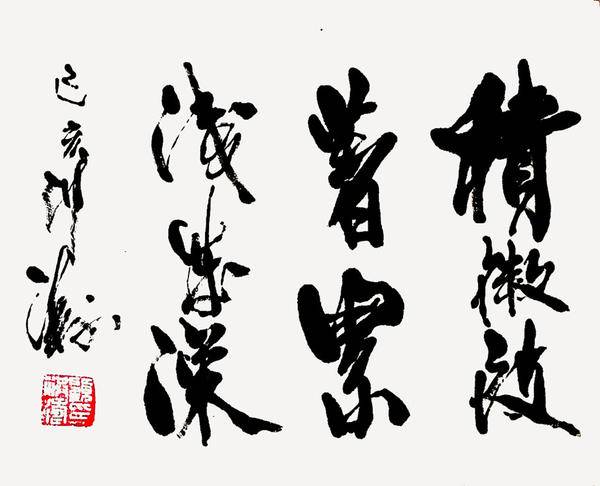 積微致
著累
浅成深
己亥